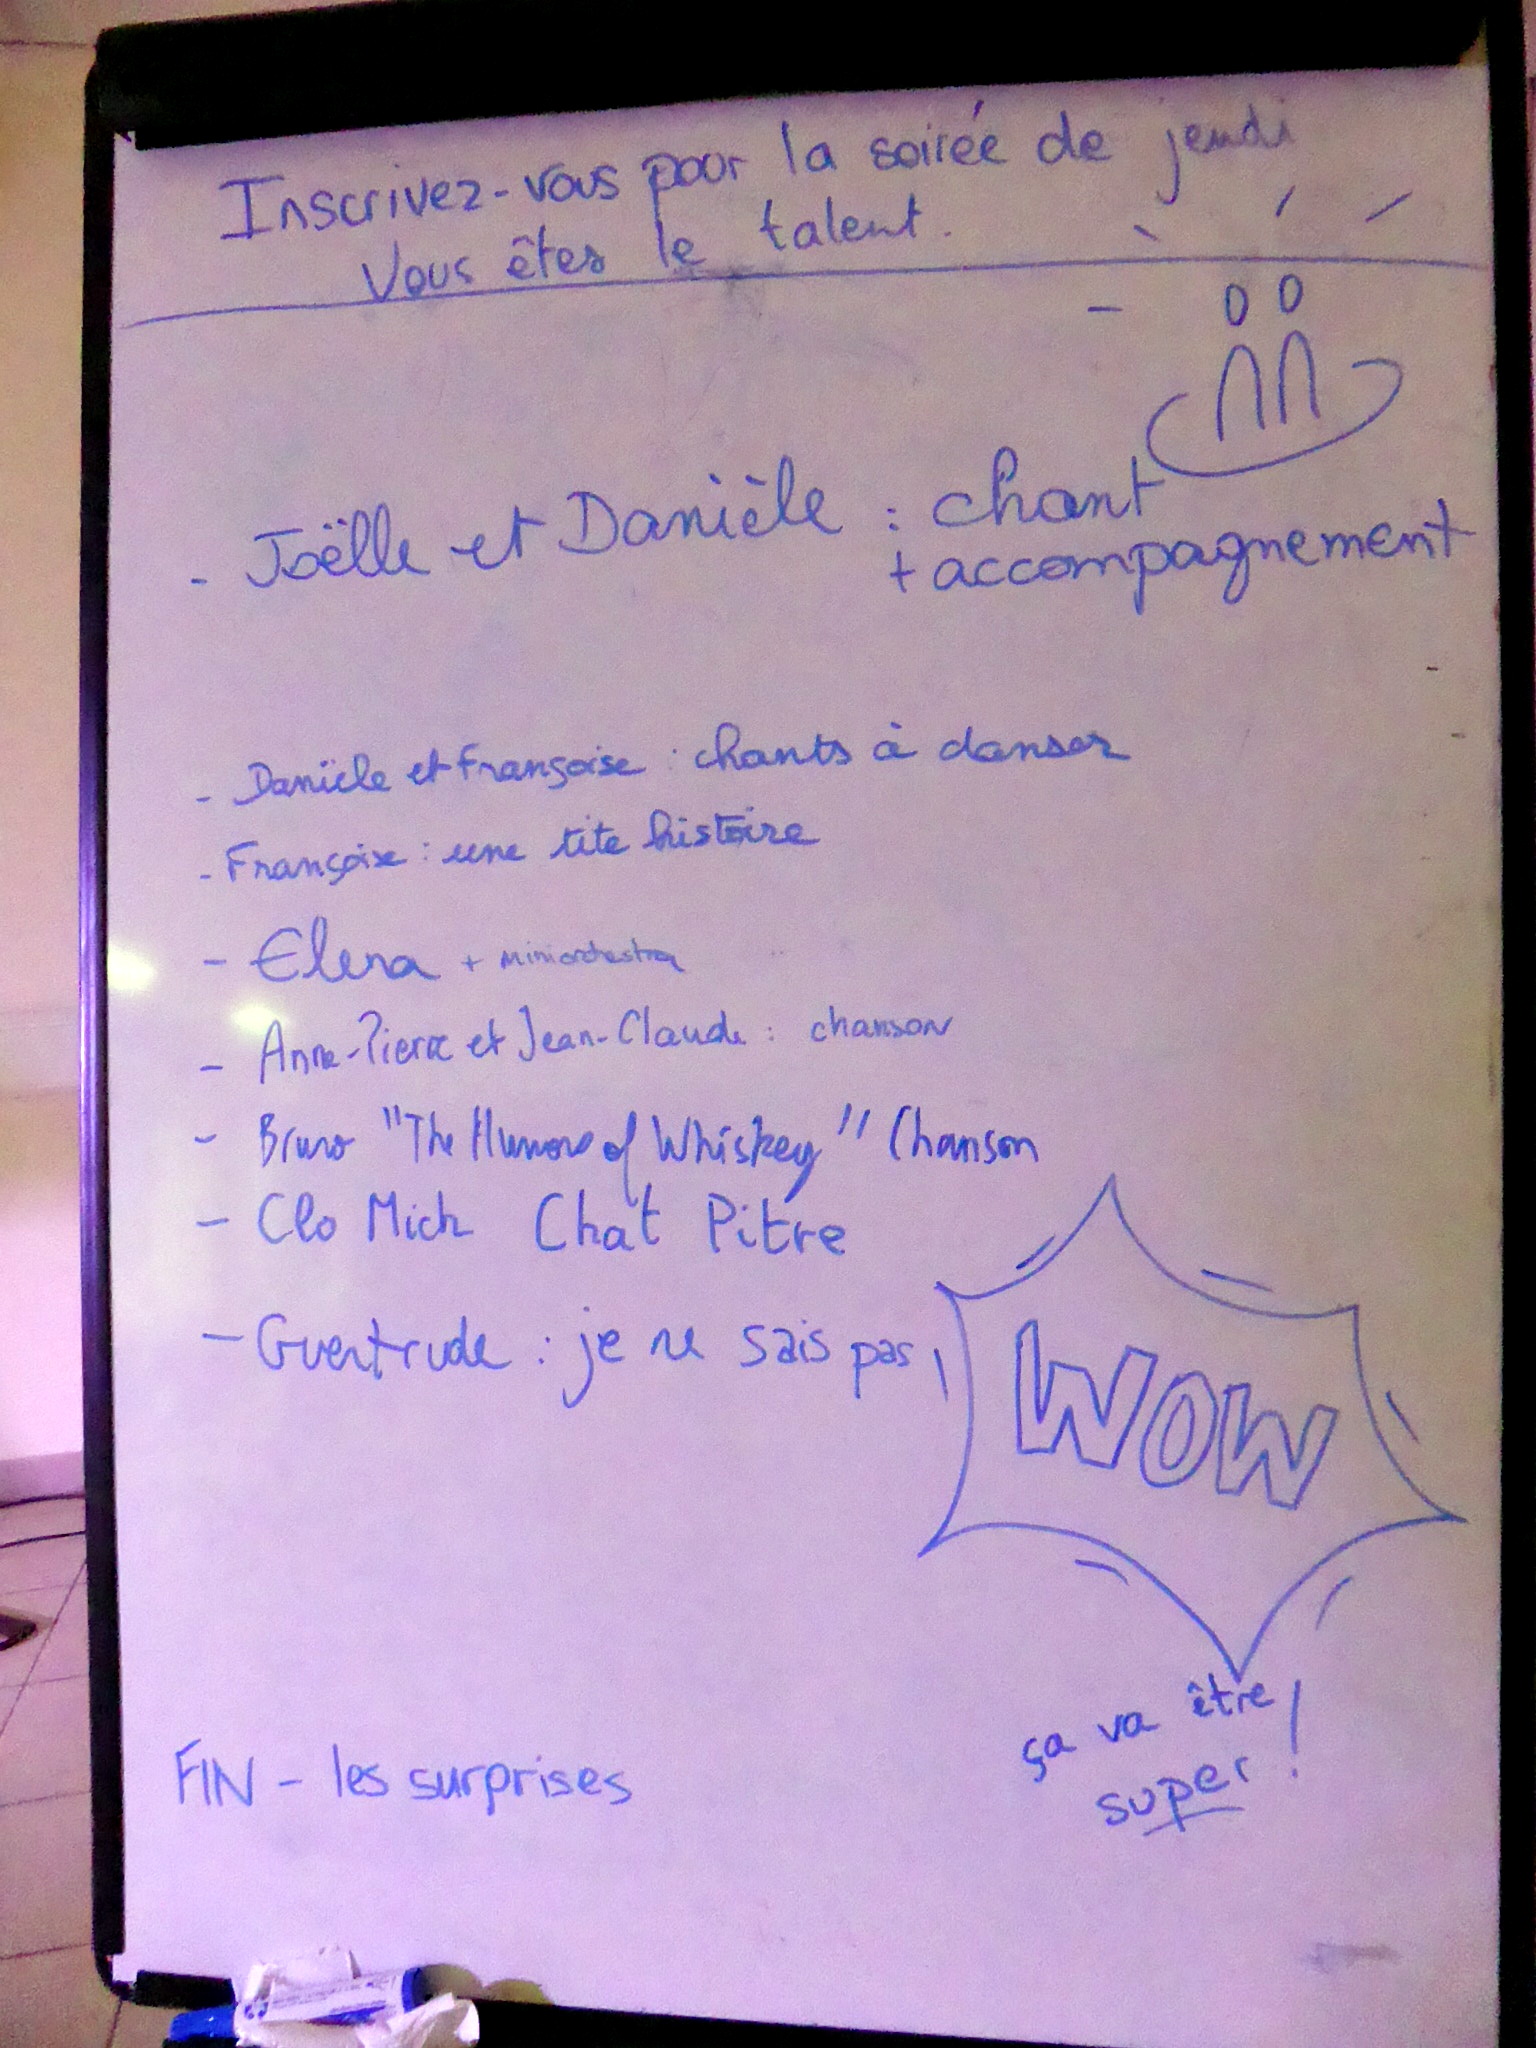 Inscrivez-vous pour la soirée de jeudi
Vous êtes le talent.
- Joëlle et Danièle : chant
+ accompagnement
- Danièle et Françoise : chants à danser
- Françoise : une tite histoire
- Elena + miniorchestra
- Anne-Pierre et Jean-Claude : chanson
- Bruno "The Humors of Whiskey" Chanson
- Clo Mich Chat Pitre
- Guertrude : je ne sais pas
WOW
ça va être
super !
FIN - les surprises